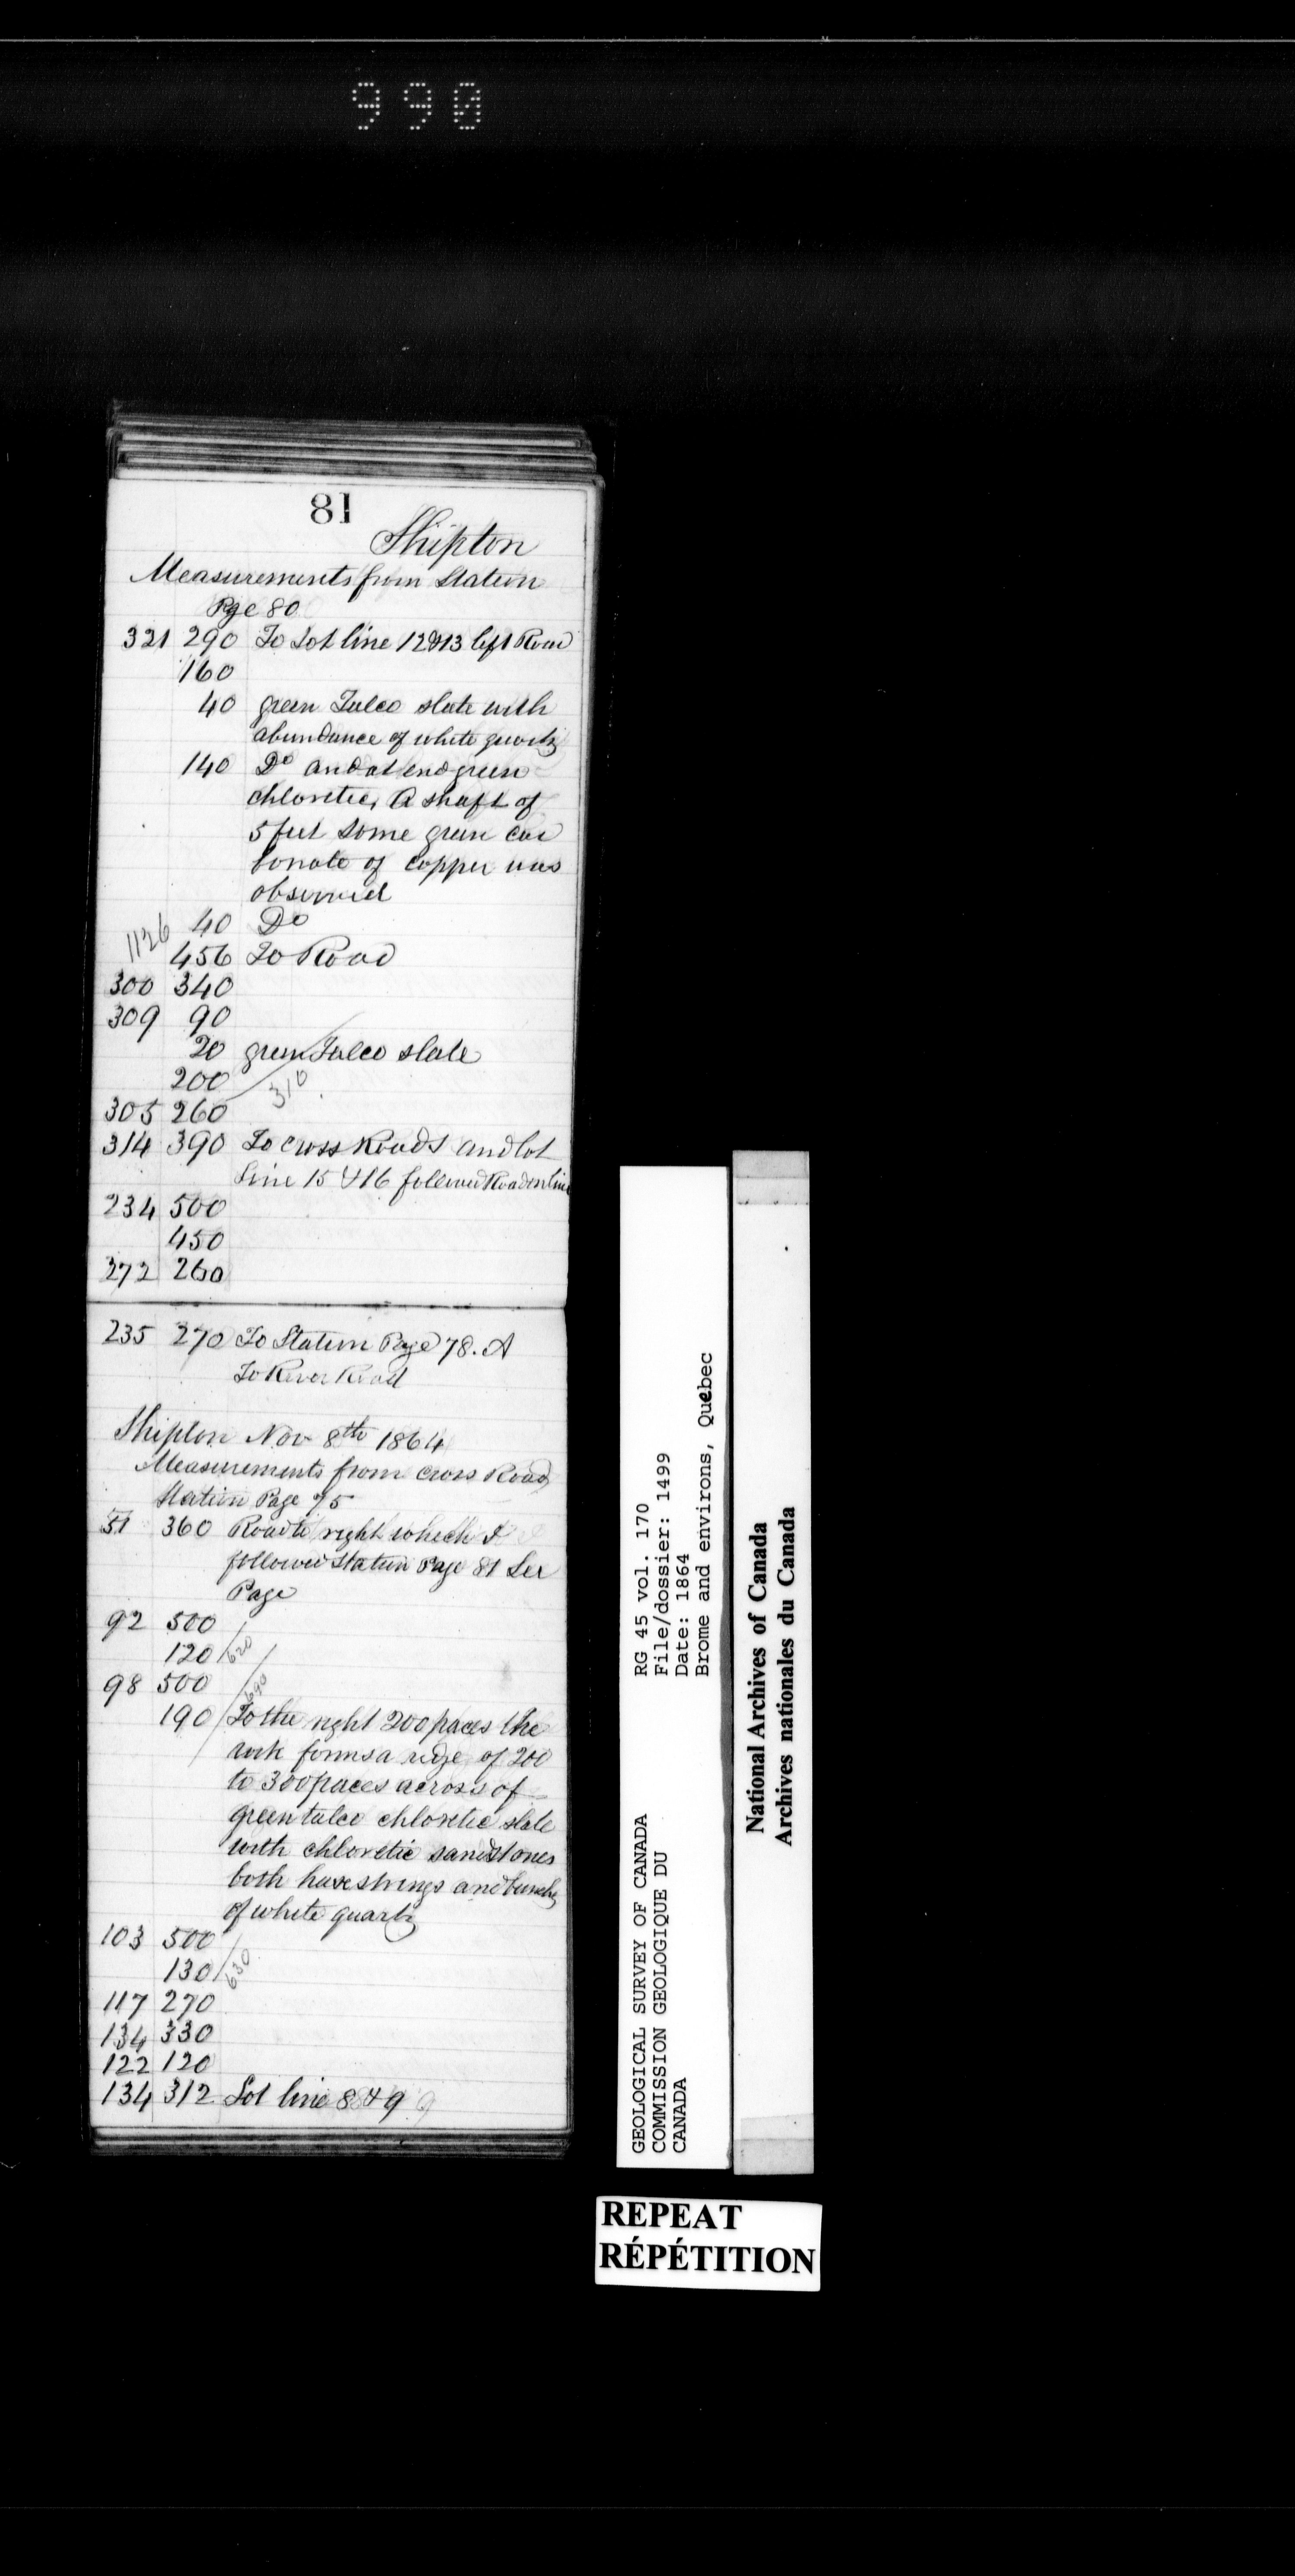 990
81
Shipton
Measurements from Station
Page 80
321 290 To Lot line 12&13 left Road
160
40 green Talco slate with
abundance of white quartz
140 Do and at end green
chloretic, A shaft of
5 feet some green car
bonate of copper was
observed
1126 40 Do
456 To Road
300 340
309 90
20 green Talco slate
200 310
305 260
314 390 To cross Roads and lot
line 15 & 16 followed Road on line
234 500
450
272 260
235 270 To Station Page 78. A
To River Road
Shipton Nov 8th 1864
Measurements from cross Road
Station Page 75
51 360 Road to right which I
followed Station Page 81 See
Page
92 500
120 620
98 500
190 690 To the right 200 paces the
rock forms a ridge of 200
to 300 paces across of
green talco chloretic slate
with chloretic sandstones
both have strings and bunches
of white quartz
103 500
130 630
117 270
134 330
122 120
134 312 Lot line 8 & 9
GEOLOGICAL SURVEY OF CANADA RG 45 vol. 170
COMMISSION GEOLOGIQUE DU File/dossier: 1499
CANADA Date: 1864
Brome and environs, Quebec
National Archives of Canada
Archives nationales du Canada
REPEAT
RÉPÉTITION